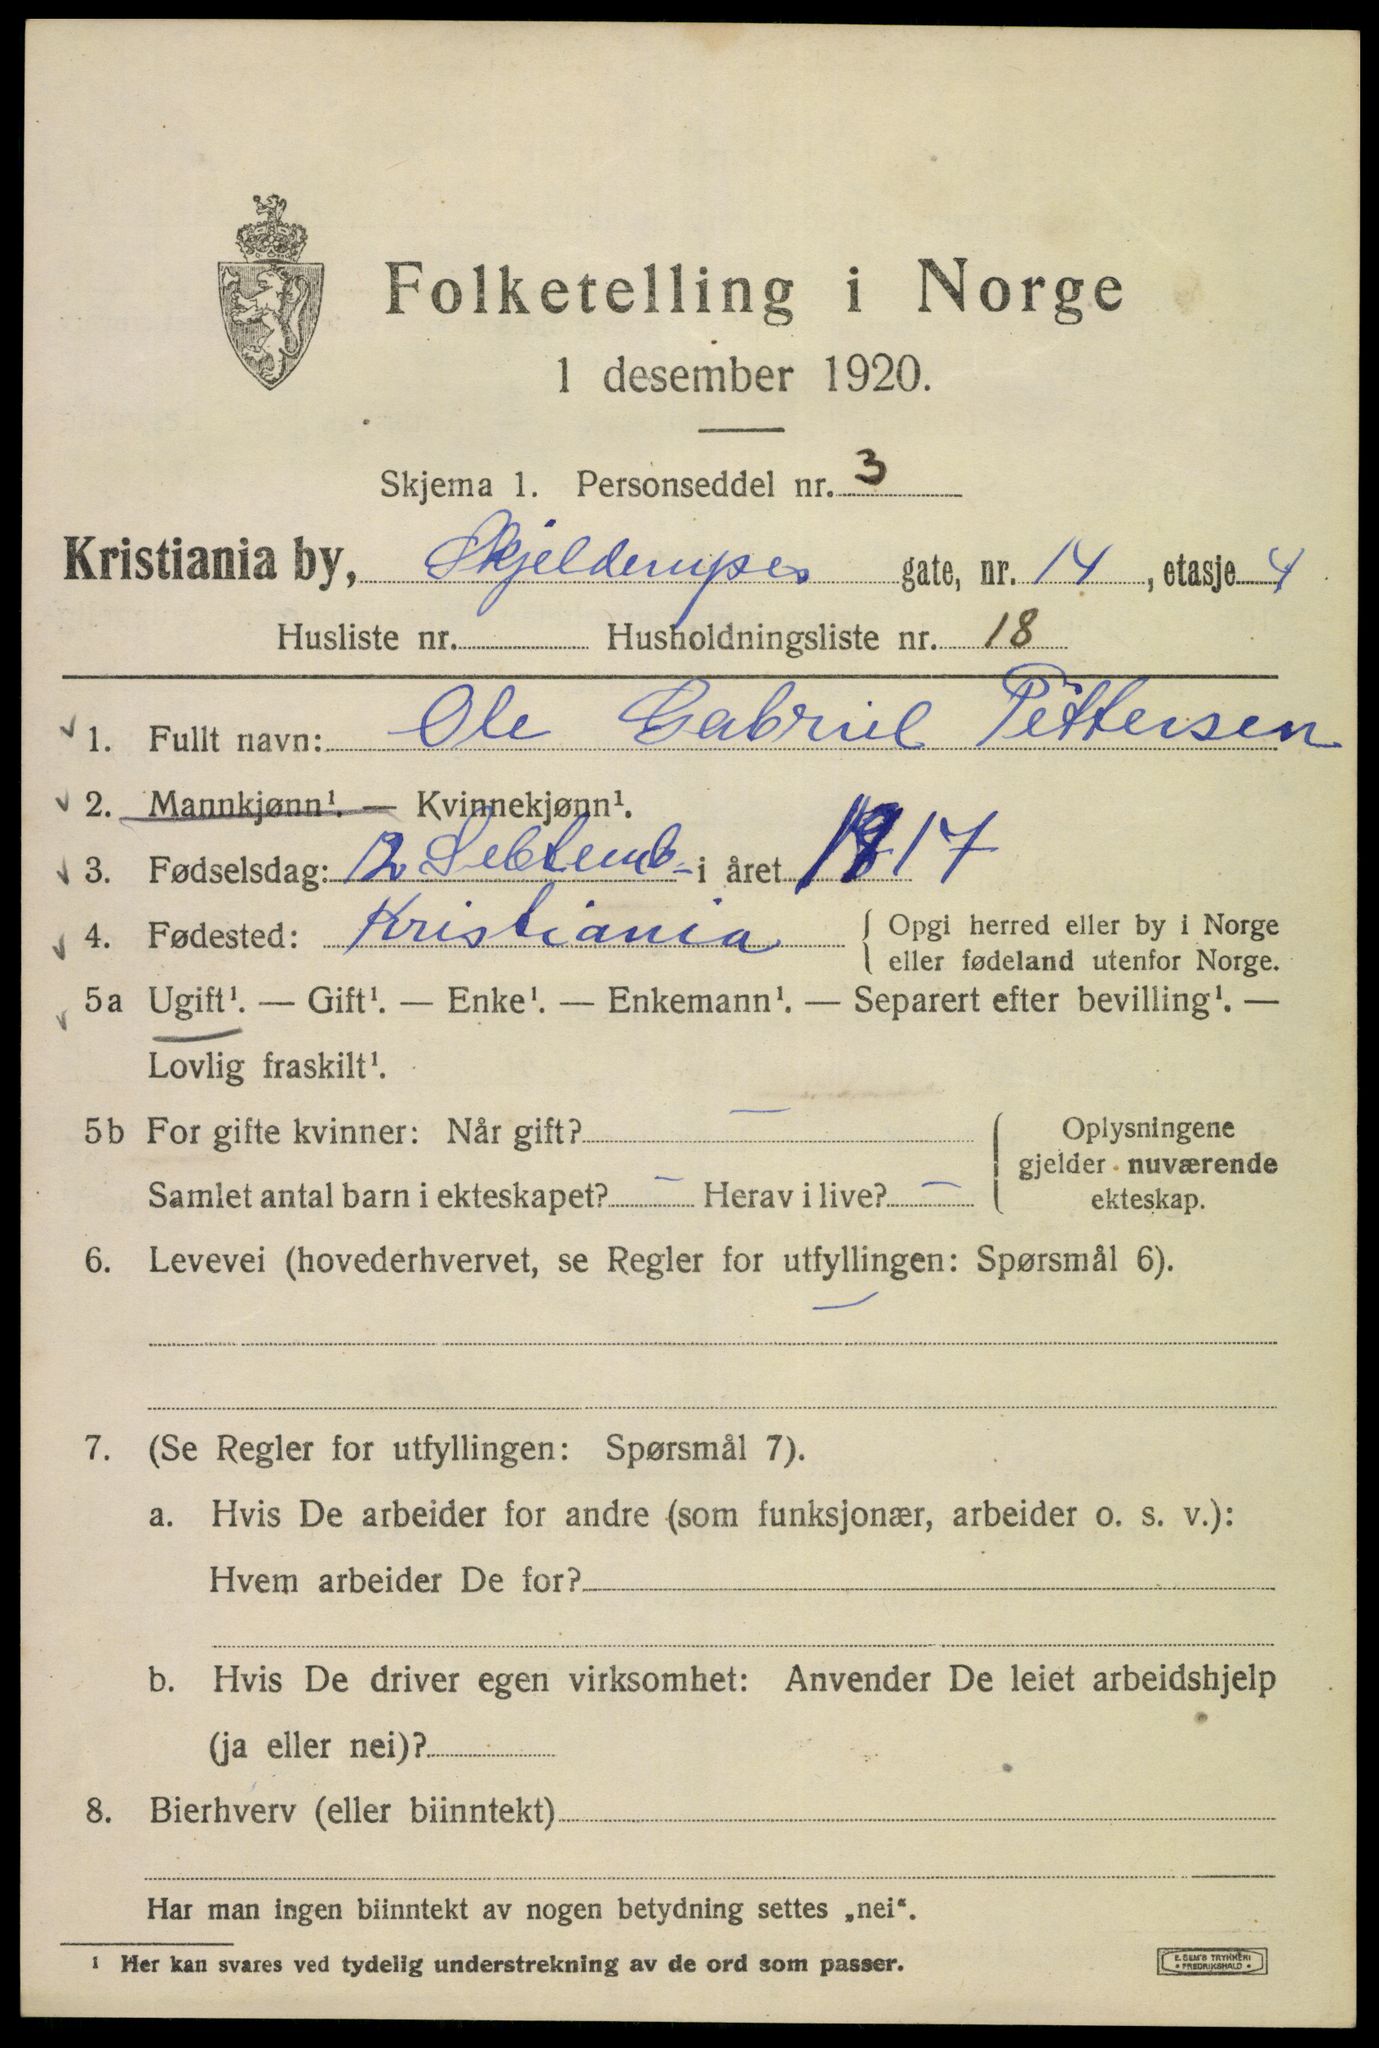 Folketelling i Norge
1 desember 1920.
Skjema 1. Personseddel nr. 3
Kristiania by, Skjelderupes gate, nr. 14, etasje 4
Husliste nr. Husholdningsliste nr. 18
1. Fullt navn: Ole Gabriel Pettersen
2. Mannkjønn¹. — Kvinnekjønn¹.
3. Fødselsdag: 12 Sebtemb i året 1917
4. Fødested: Kristiania { Opgi herred eller by i Norge
eller fødeland utenfor Norge.
5a Ugift¹. — Gift¹. — Enke¹. — Enkemann¹. — Separert efter bevilling¹. —
Lovlig fraskilt¹.
5b For gifte kvinner: Når gift? — { Oplysningene
gjelder nuværende
Samlet antal barn i ekteskapet? — Herav i live? — ekteskap.
6. Levevei (hovederhvervet, se Regler for utfyllingen: Spørsmål 6).
—
7. (Se Regler for utfyllingen: Spørsmål 7).
a. Hvis De arbeider for andre (som funksjonær, arbeider o. s. v.):
Hvem arbeider De for?
b. Hvis De driver egen virksomhet: Anvender De leiet arbeidshjelp
(ja eller nei)?
8. Bierhverv (eller biinntekt)
Har man ingen biinntekt av nogen betydning settes „nei“.
¹ Her kan svares ved tydelig understrekning av de ord som passer.
E. SEM'S TRYKKERI
• FREDRIKSHALD •